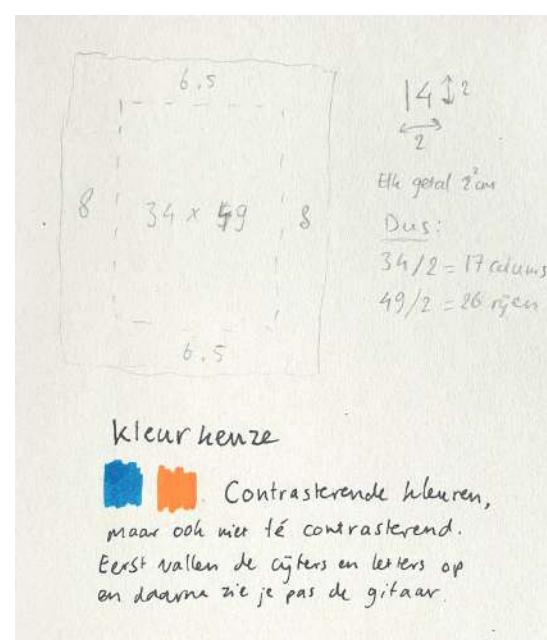 6.5
8
34 x 49
8
6.5
14 2
2
Elk getal 2²cm
Dus:
34/2 = 17 colums
49/2 = 26 rijen
kleurkeuze
Contrasterende kleuren,
maar ook niet té contrasterend.
Eerst vallen de cijfers en letters op
en daarna zie je pas de gitaar.